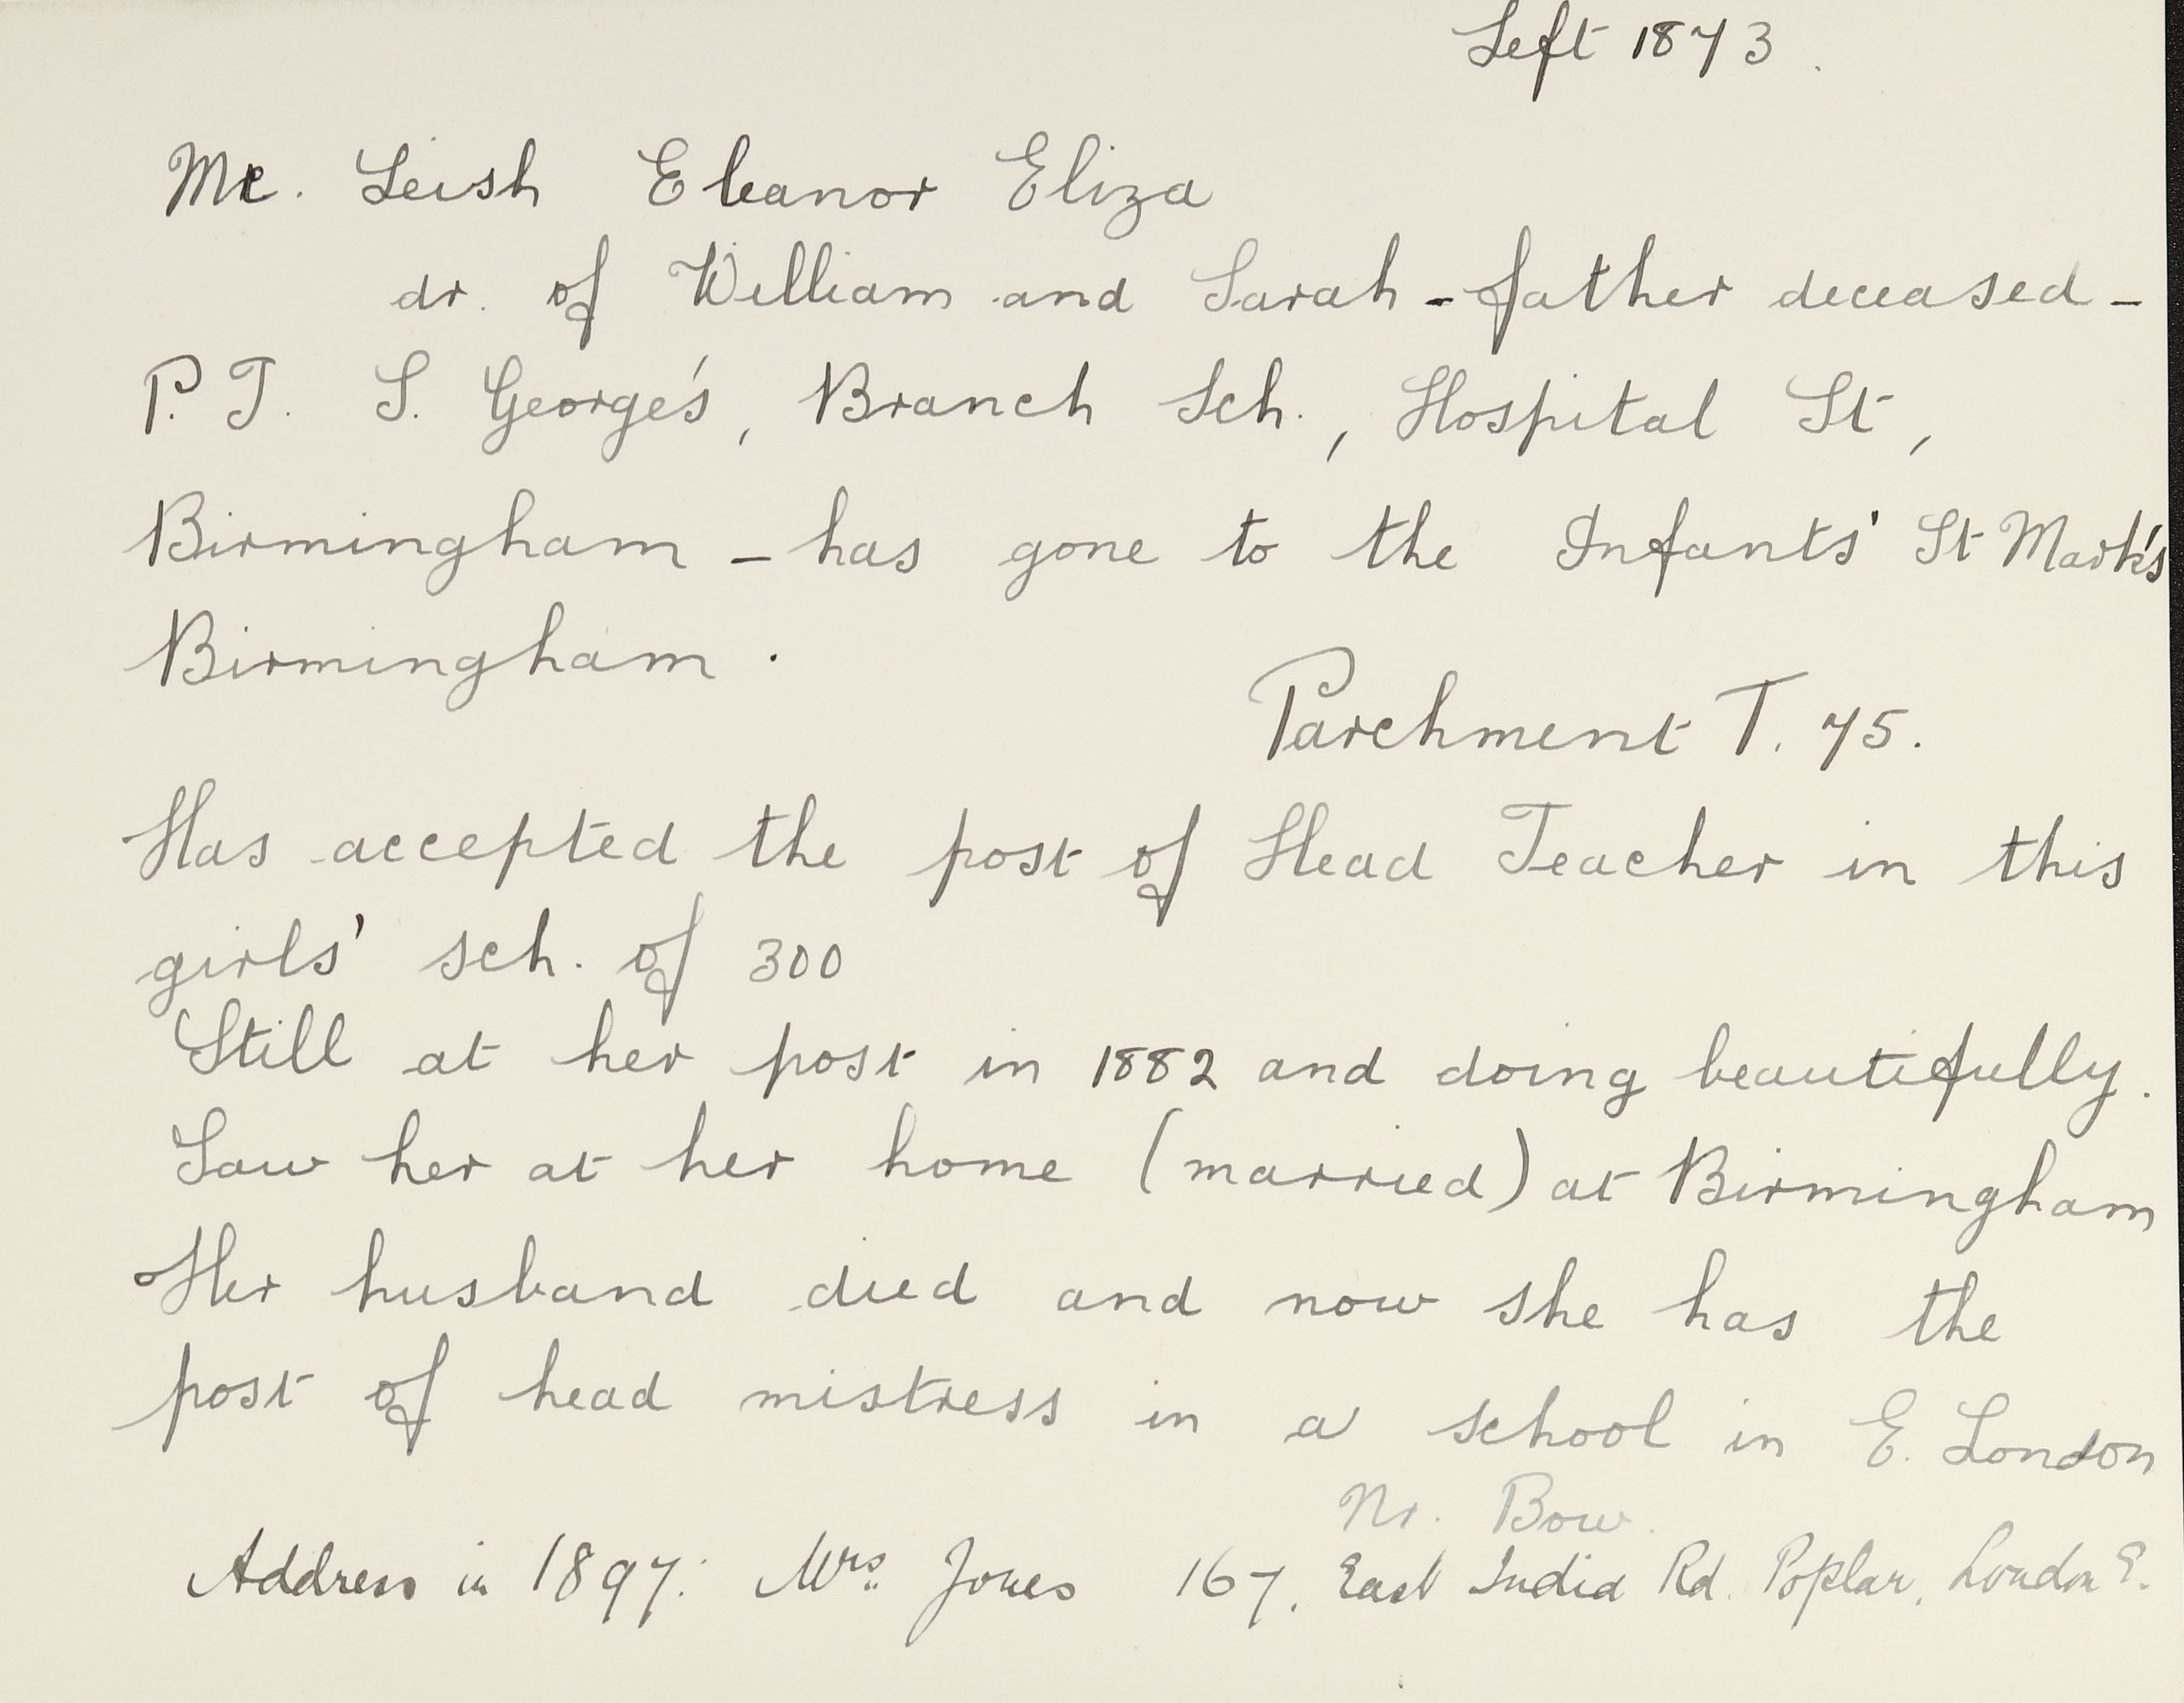 Left 1873.
Mc. Leish Eleanor Eliza
dr. of William and Sarah - father deceased -
P.T. S. George's, Branch Sch., Hospital St,
Birmingham - has gone to the Infants' St Mark's
Birmingham.
Parchment T. 75.
Has accepted the post of Head Teacher in this
girls' sch. of 300
Still at her post in 1882 and doing beautifully.
Saw her at her home (married) at Birmingham
Her husband died and now she has the
post of head mistress in a school in E. London
Nr. Bow.
Address in 1897: Mrs. Jones 167, East India Rd. Poplar, London E.